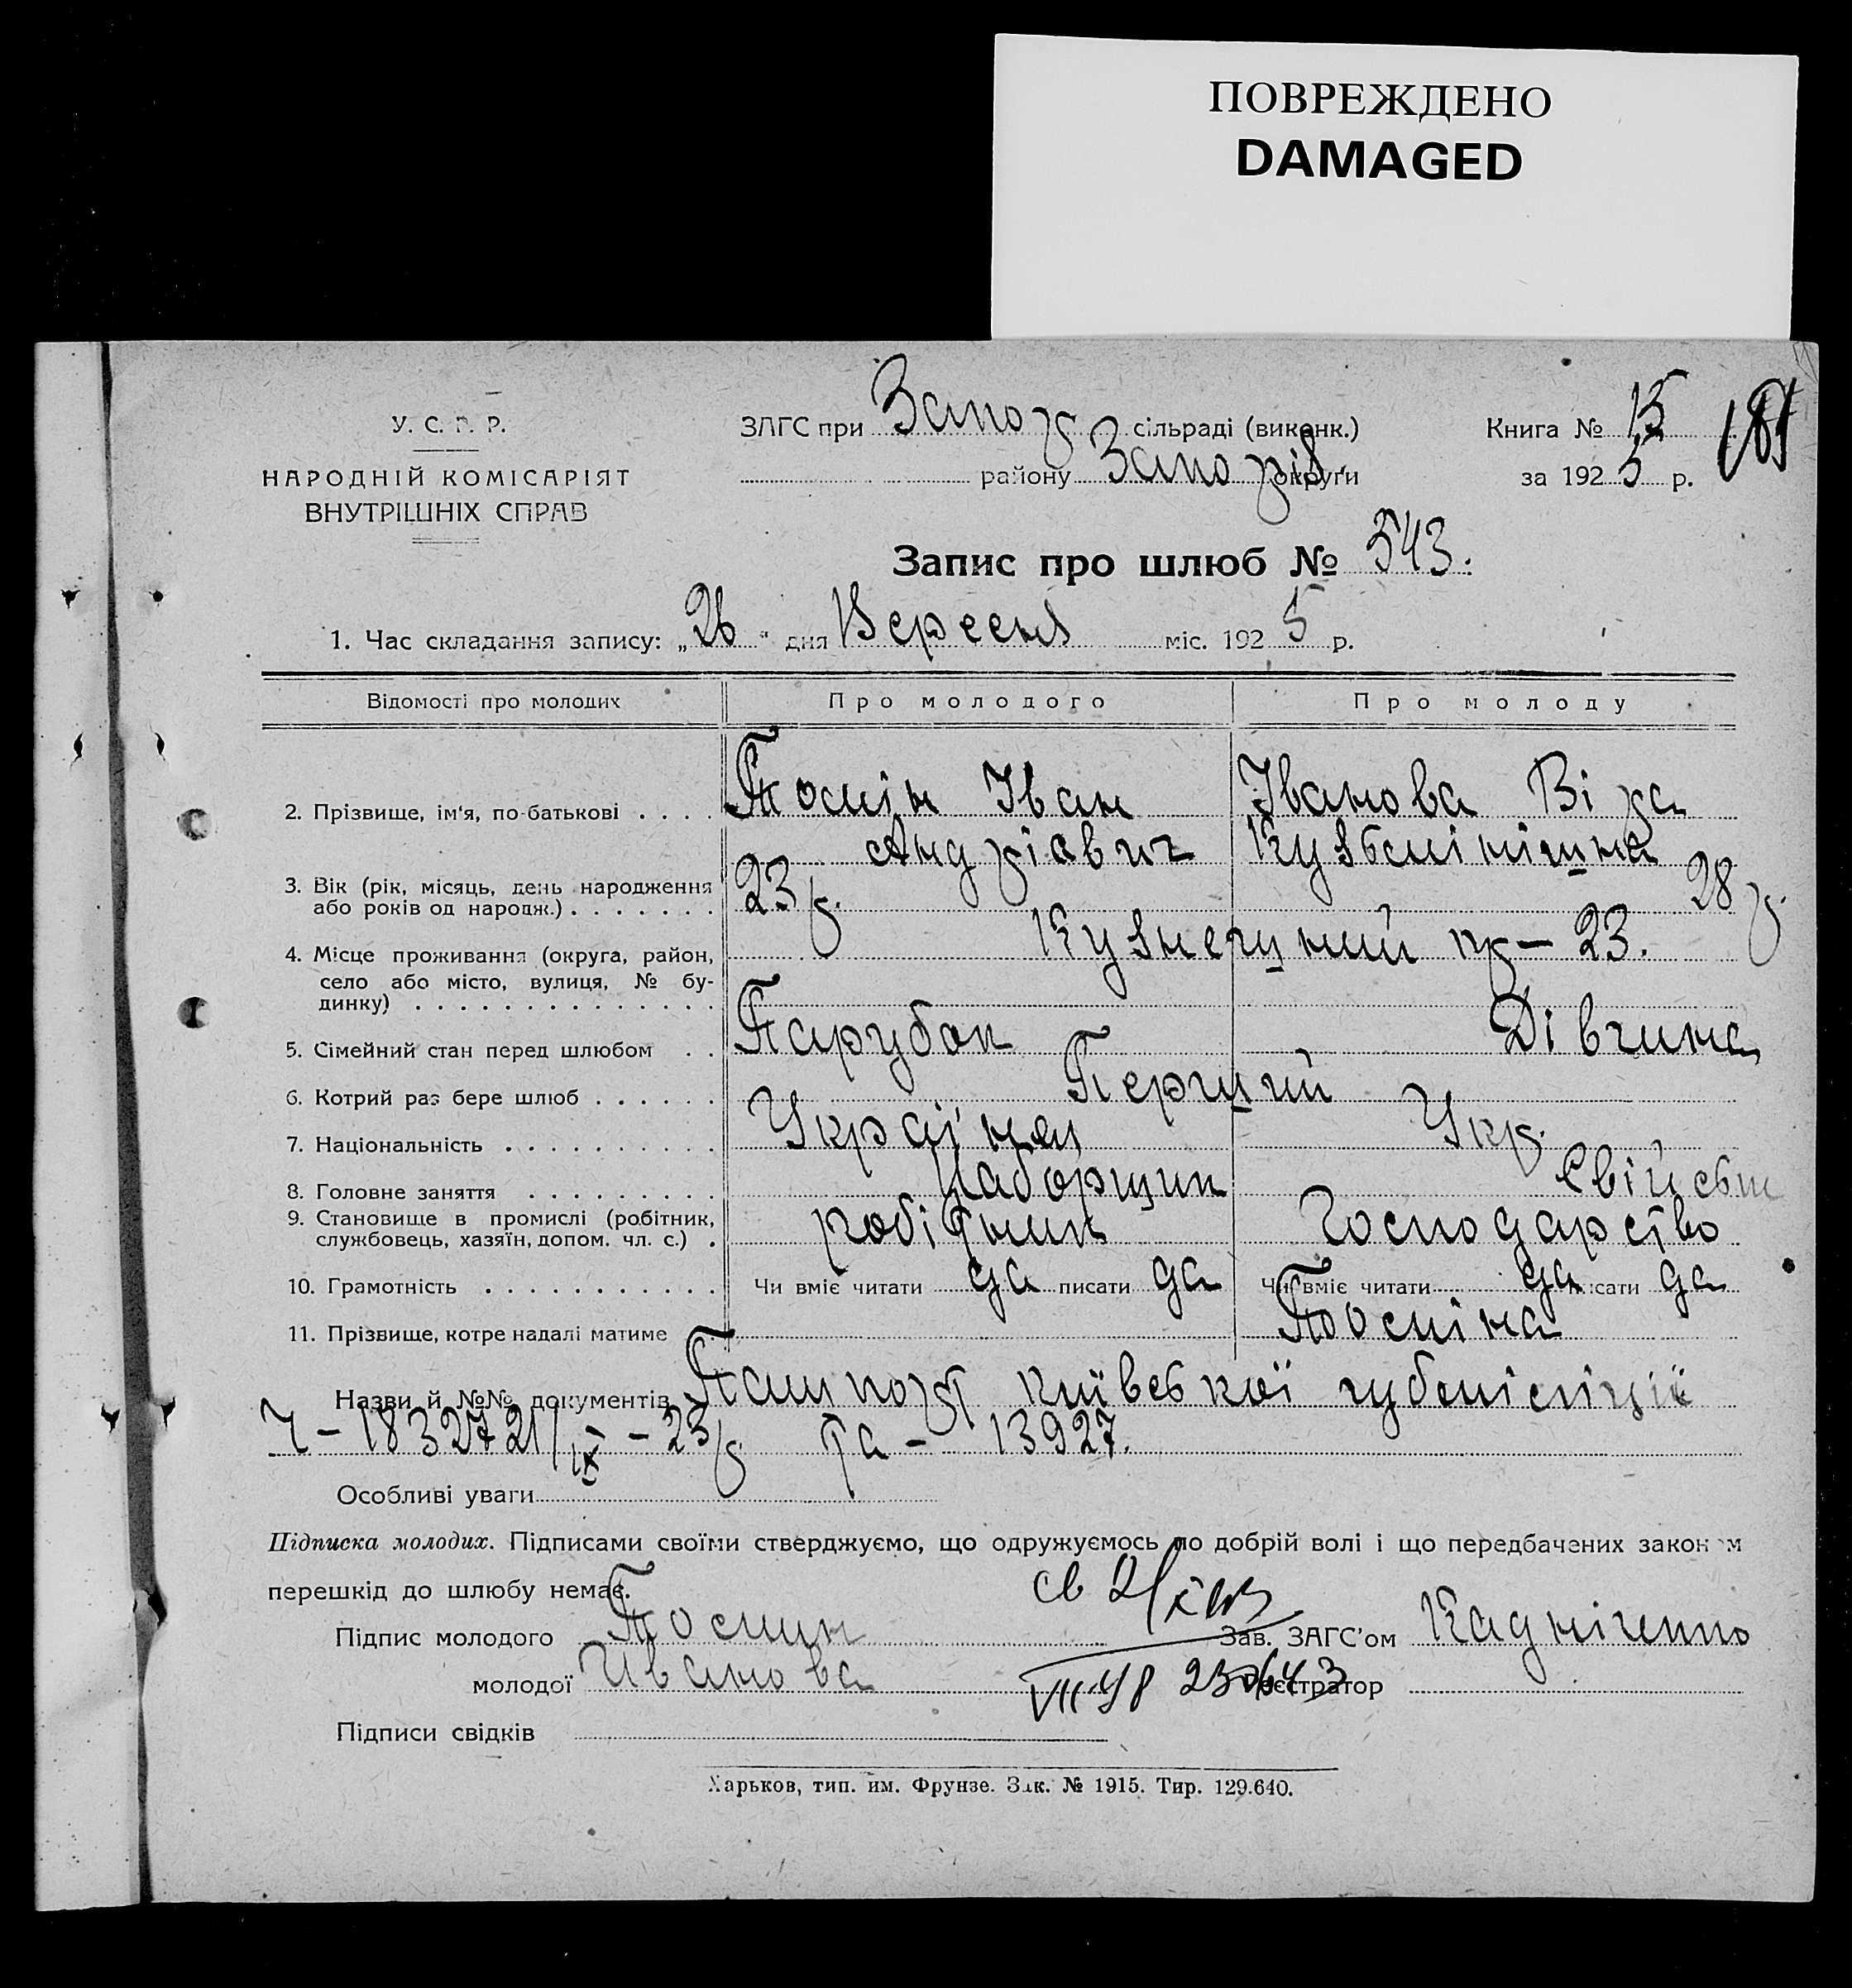 ПОВРЕЖДЕНО
DAMAGED
У. С. Р. Р.
НАРОДНІЙ КОМІСАРІЯТ
ВНУТРІШНІХ СПРАВ
ЗАГС при Запор сільраді (виконк.)
району Запоріз округи
Книга № 15
за 1925 р.
Запис про шлюб № 543.
1. Час складання запису: „26" дня Вересня міс. 1925 р.
Відомості про молодих Про молодого Про молоду
2. Прізвище, ім'я, по-батькові . . . . Тосмін Іван Іванова Віра
Андріавич Кузьмінішна
3. Вік (рік, місяць, день народження
або років од народж.) . . . . . . . 23 р. 28 р.
4. Місце проживання (округа, район, Кузнечний пр – 23.
село або місто, вулиця, № бу-
динку) . . . . . . . . . . . . . .
5. Сімейний стан перед шлюбом . . Парубок Дівчина
6. Котрий раз бере шлюб . . . . . . Перший
7. Національність . . . . . . . . . . Україней Укр.
8. Головне заняття . . . . . . . . . Наборщик Свійськ
9. Становище в промислі (робітник,
службовець, хазяїн, допом. чл. с.) . робітник Господарство
10. Грамотність . . . . . . . . . . . Чи вміє читати да писати да Чи вміє читати да писати да
11. Прізвище, котре надалі матиме Тосміна
Назви й №№ документів Пашпорт київської губміліції
Ч – 1832721/IX – 23 р та – 13927.
Особливі уваги
Підписка молодих. Підписами своїми стверджуємо, що одружуємось по добрій волі і що передбачених законом
перешкід до шлюбу немає.
Підпис молодого Тосмин
Зав. ЗАГС'ом Кадніченко
молодої Иванова
Реєстратор
Підписи свідків
Харьков, тип. им. Фрунзе. Зак. № 1915. Тир. 129.640.